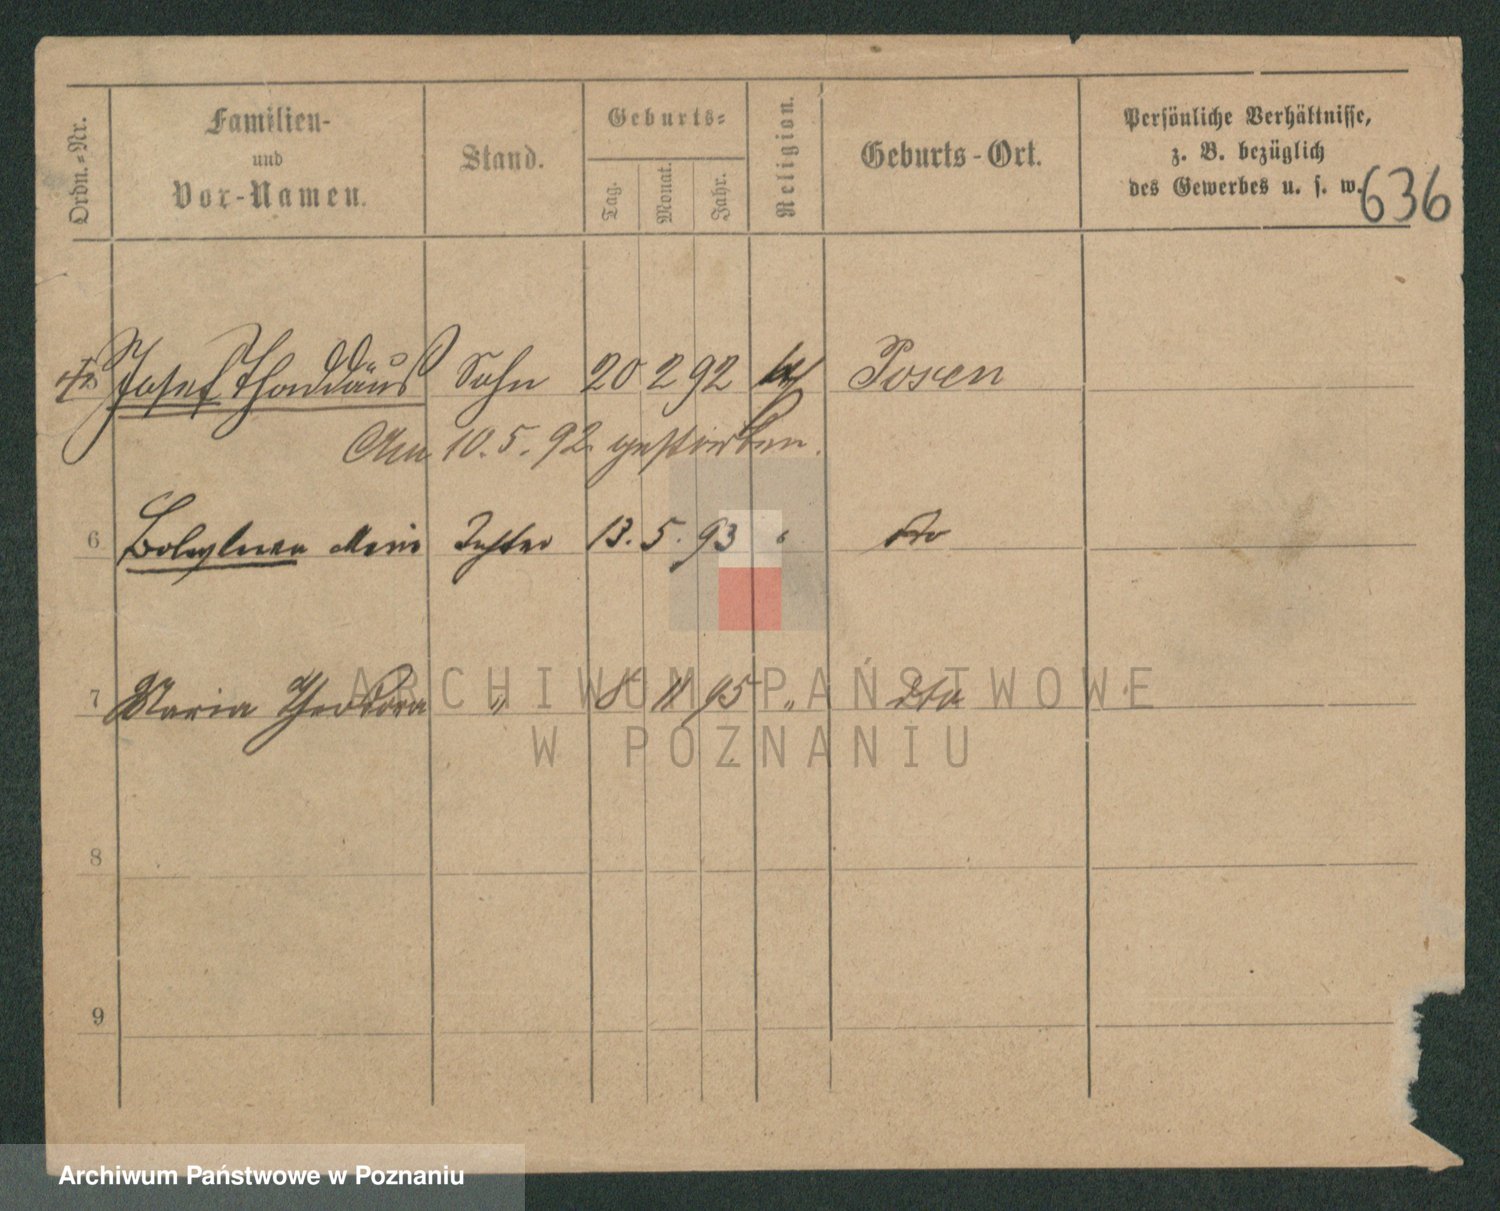 Ordn.-Nr.
Familien-
und
Vor-Namen.
Stand.
Geburts-
Tag.
Monat.
Jahr.
Religion.
Geburts-Ort.
Persönliche Verhältnisse,
z. B. bezüglich
des Gewerbes u. s. w.
636
Josef Thaddäus Sohn 20 2 92 Posen
Am 10.5.92 gestorben.
6 13. 5. 93 dto
7 Maria Theodora " 8 11 95 " dto
8
9
ARCHIWUM PAŃSTWOWE
W POZNANIU
Archiwum Państwowe w Poznaniu